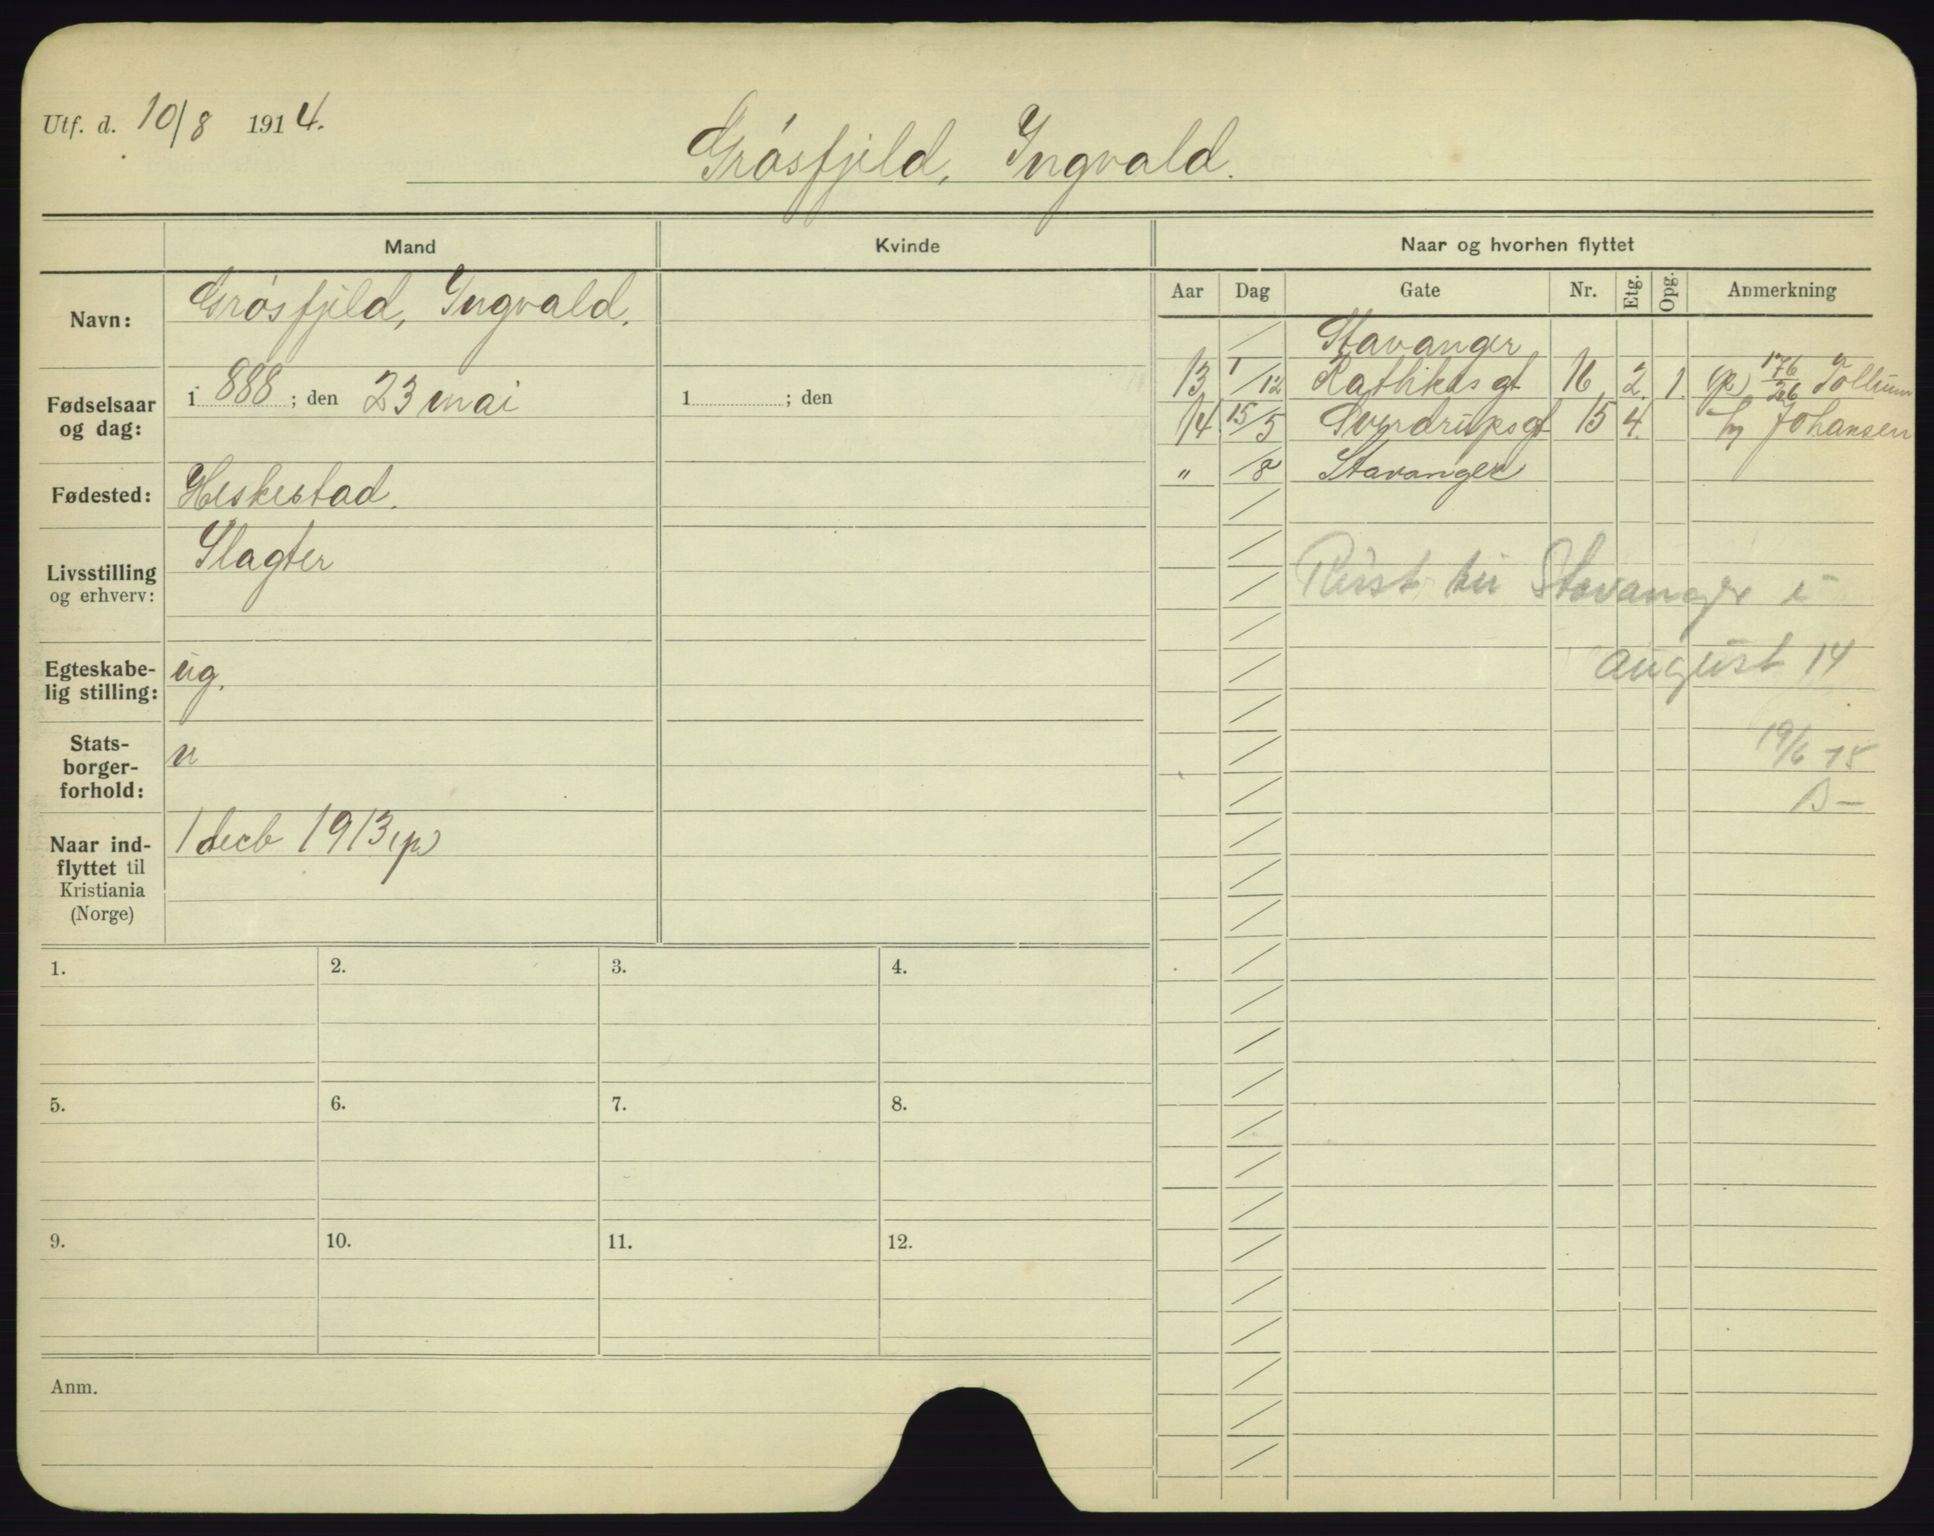 Utf. d. 10/8 1914.
Grøsfjeld, Ingvald.
Mand
Kvinde
Naar og hvorhen flyttet
Aar Dag Gate Nr. Etg. Opg. Anmerkning
Navn: Grøsfjeld, Ingvald.
Fødselsaar og dag: i 888 ; den 23 mai
1 ; den
Fødested: Heskestad.
Livsstilling og erhverv: Slagter
Egteskabe-
lig stilling: ug.
Stats-
borger-
forhold: n
Naar ind-
flyttet til
Kristiania
(Norge) 1 decb 1913 (p)
Stavanger
13 1/12 Rathkes gt 16 2. 1. (p) 176/26
14 15/5 Sverdrupsgt 15 4. Johansen
" /8 Stavanger
Reist til Stavanger i
august 14
19/6 15
1.
2.
3.
4.
5.
6.
7.
8.
9.
10.
11.
12.
Anm.